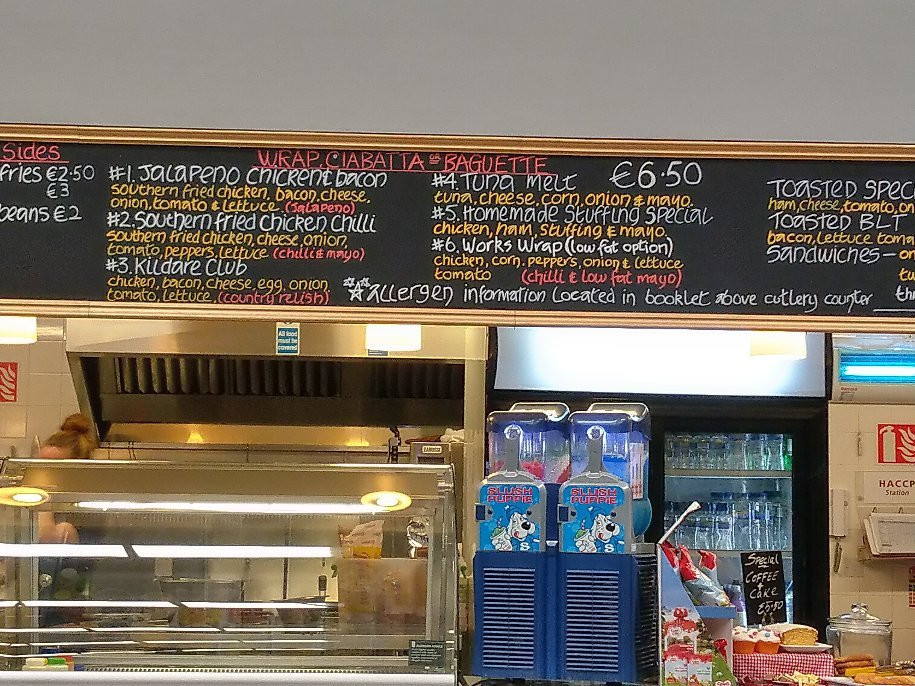 Sides
fries €2.50
€3
beans €2
WRAP, CIABATTA OR BAGUETTE
€6.50
#1. Jalapeno Chicken & bacon
southern fried chicken, bacon, cheese,
onion, tomato & lettuce. (Jalapeno)
#2. Southern fried Chicken Chilli
southern fried chicken, cheese, onion,
tomato, peppers, lettuce (chilli & mayo)
#3. Kildare Club
chicken, bacon, cheese, egg, onion
tomato, lettuce, (country relish)
#4. Tuna melt
tuna, cheese, corn, onion & mayo.
#5. Homemade Stuffing Special
chicken, ham, stuffing & mayo.
#6. Works Wrap (low fat option)
chicken, corn, peppers, onion & lettuce
tomato (chilli & low fat mayo)
Allergen information located in booklet above cutlery counter
TOASTED SPEC
ham, cheese, tomato, on
TOASTED BLT
bacon, lettuce toma
Sandwiches - on
tw
thr
All food
must be
covered
SLUSH
PUPPIE
SLUSH
PUPPIE
HACCP
Station
Special
COFFEE
+
Cake
€5.50